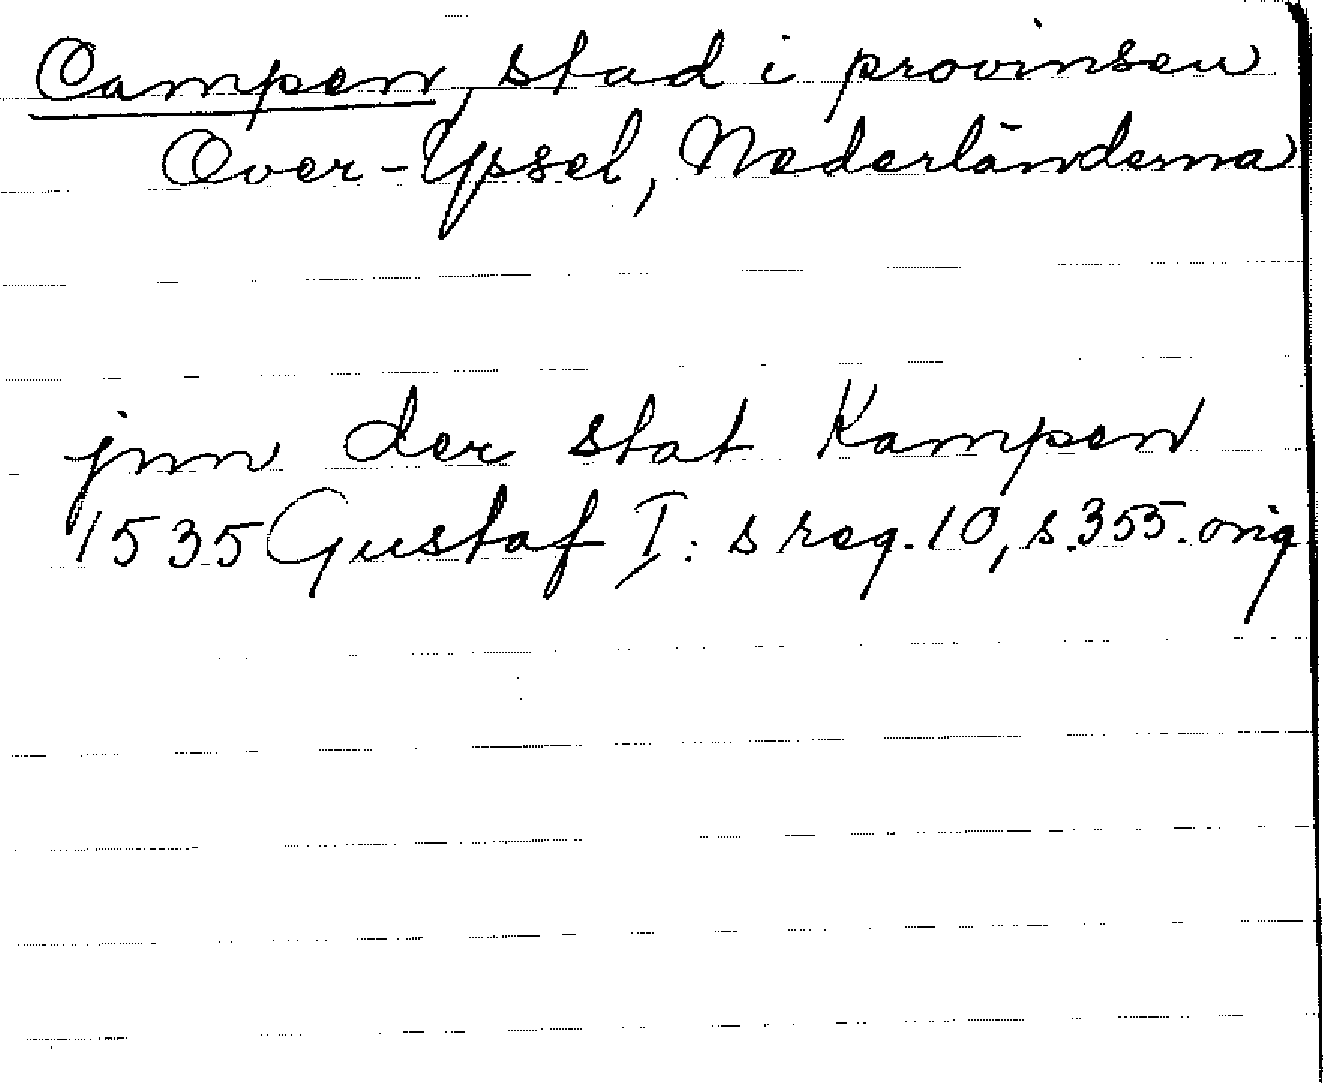 Campen, stad i provinsen
Over-Ypsel, Nederländerna
jnn der stat Kampen
1535 Gustaf I: s reg. 10, s. 355. orig.